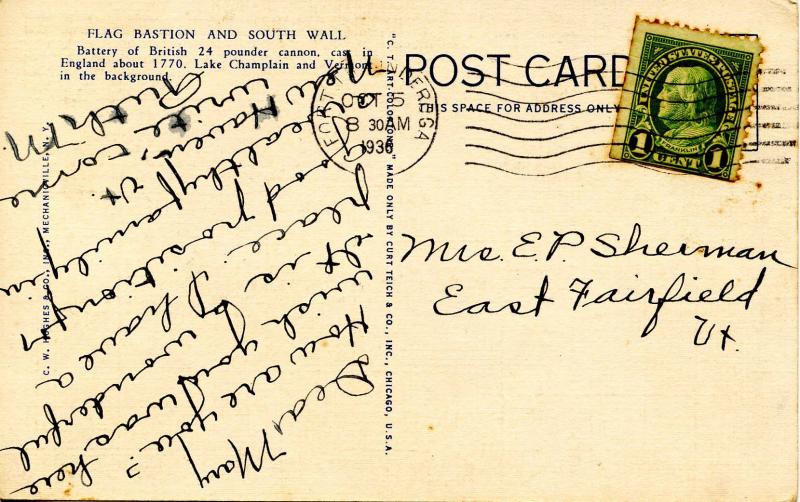 FLAG BASTION AND SOUTH WALL
Battery of British 24 pounder cannon, cast in
England about 1770. Lake Champlain and Vermont
in the background.
POST CARD
THIS SPACE FOR ADDRESS ONLY
FORT TICONDEROGA
OCT 5
8 30 AM
193
UNITED STATES POSTAGE
FRANKLIN
1 CENT 1
Mrs. E.P. Sherman
East Fairfield
Vt.
Dear Mary
How are you?
wish you was here
It is a wonderful
place. I have a
good position for
a wealthy family in
New Haven, Vt.
write, come
Ruth M.
C. W. HUGHES & CO., INC., MECHANICVILLE, N. Y.
"C. T. ART-COLORTONE" MADE ONLY BY CURT TEICH & CO., INC., CHICAGO, U.S.A.